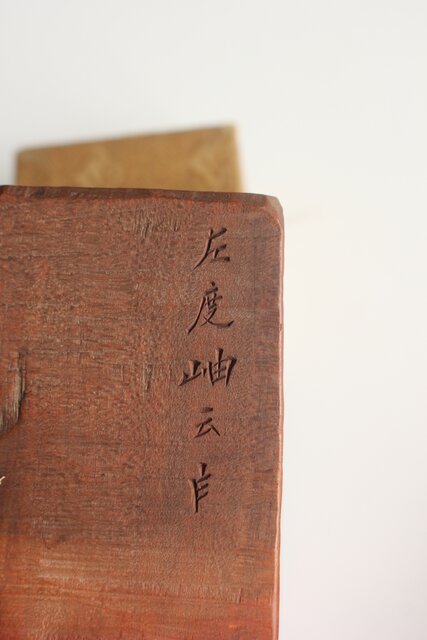 左度岫云